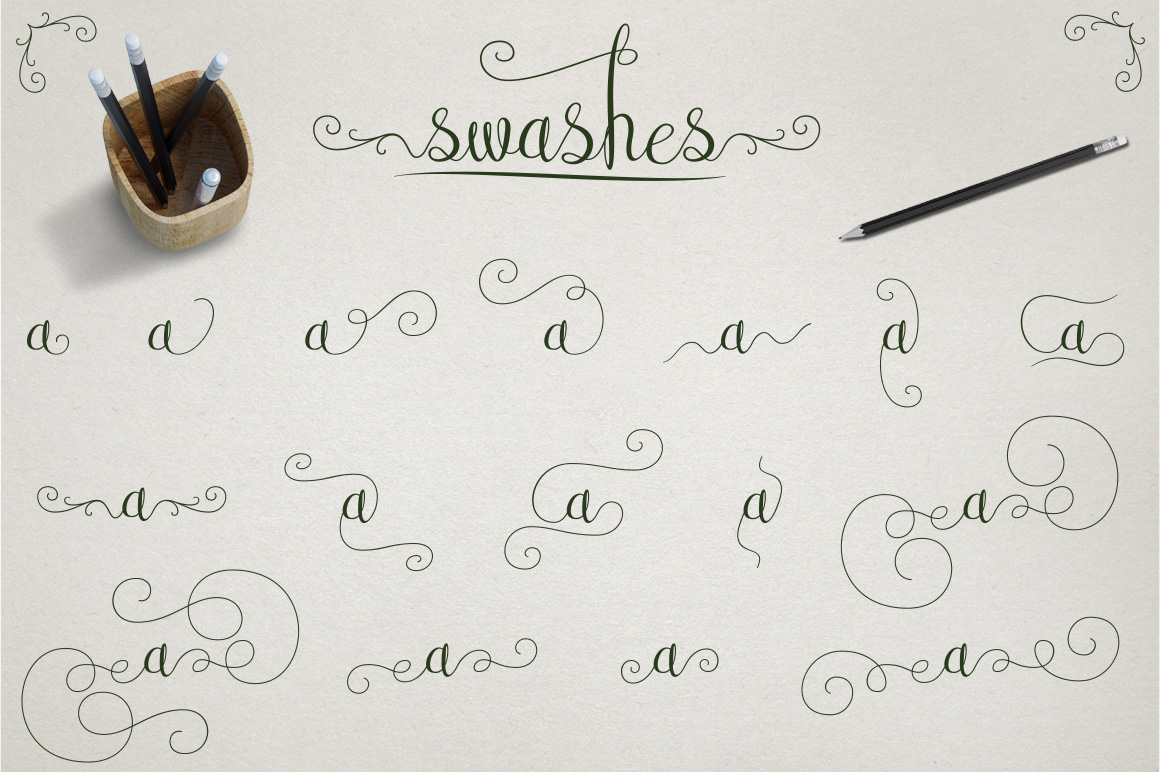 swashes
a a a a a a a
a a a a a
a a a a